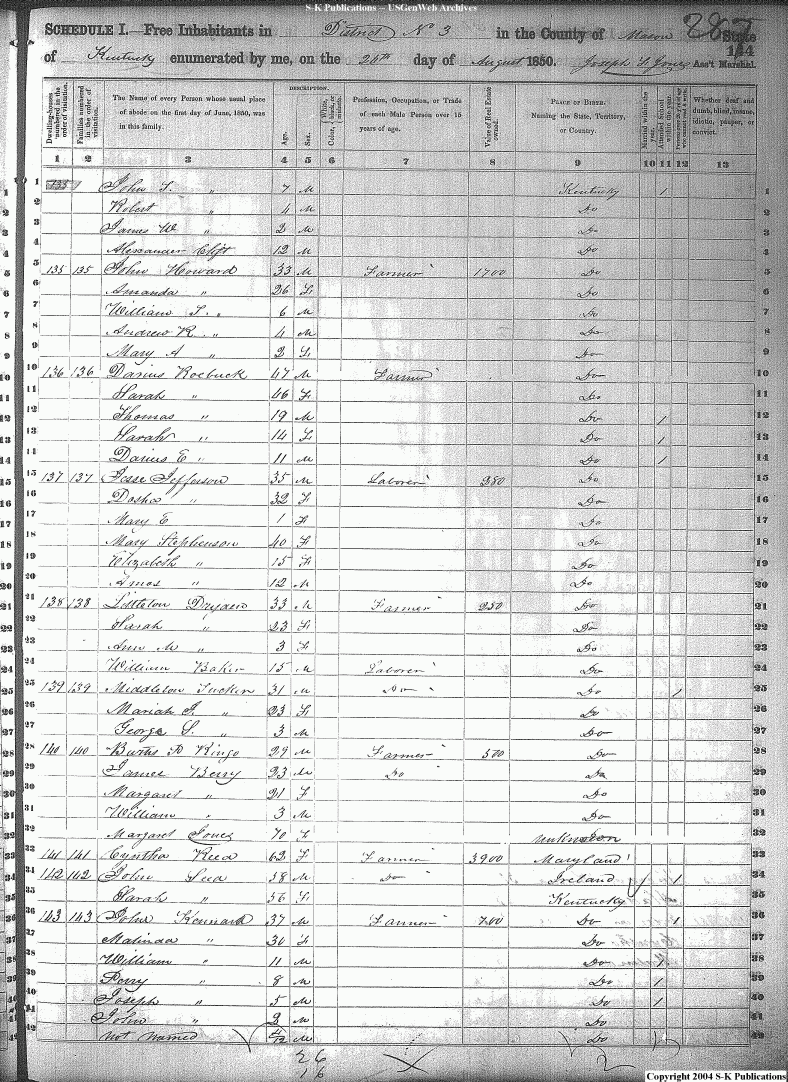 S-K Publications -- USGenWeb Archives
SCHEDULE I.—Free Inhabitants in District No 3 in the County of Mason State
of Kentucky enumerated by me, on the 26th day of August 1850. Joseph S. Jones Ass't Marshal.
287
144
Dwelling-houses numbered in the order of visitation.
Families numbered in the order of visitation.
The Name of every Person whose usual place of abode on the first day of June, 1850, was in this family.
DESCRIPTION.
Age.
Sex.
Color, White, black, or mulatto.
Profession, Occupation, or Trade of each Male Person over 15 years of age.
Value of Real Estate owned.
PLACE OF BIRTH. Naming the State, Territory, or Country.
Married within the year.
Attended School within the year.
Whether deaf and dumb, blind, insane, idiotic, pauper, or convict.
1 2 3 4 5 6 7 8 9 10 11 12 13
1 135 John T. " 7 M Kentucky 1 1
2 Robert " 4 M Do 2
3 James W " 2 M Do 3
4 Alexander Clift 12 M Do 4
5 135 135 John Howard 33 M Farmer 1700 Do 5
6 Amanda " 26 F Do 6
7 William T. " 6 M Do 7
8 Andrew R. " 4 M Do 8
9 Mary A " 2 F Do 9
10 136 136 Darius Roebuck 47 M Farmer Do 10
11 Sarah " 46 F Do 11
12 Thomas " 19 M Do 1 12
13 Sarah " 14 F Do 1 13
14 Darius E " 11 M Do 1 14
15 137 137 Jesse Jefferson 35 M Laborer 250 Do 15
16 Dosha " 32 F Do 16
17 Mary E 1 F Do 17
18 Mary Stephenson 40 F Do 18
19 Elizabeth " 15 F Do 19
20 Amos " 12 M Do 20
21 138 138 Littleton Dryden 33 M Farmer 250 Do 21
22 Sarah " 23 F Do 22
23 Ann M " 3 F Do 23
24 William Baker 15 M Laborer Do 24
25 139 139 Middleton Tucker 31 M Do Do 1 25
26 Mariah J. " 23 F Do 26
27 George S. " 3 M Do 27
28 140 140 Burtis Ringo 29 M Farmer 500 Do 28
29 James Berry 23 M Do Do 29
30 Margaret " 21 F Do 30
31 William " 3 M Do 31
32 Margaret Jones 70 F Unknown 32
33 141 141 Cyntha Reed 62 F Farmer 3900 Maryland 33
34 142 142 John 58 M Do Ireland 1 34
35 Sarah " 56 F Kentucky 35
36 143 143 John Kennard 37 M Farmer 700 Do 1 36
37 Malinda " 30 F Do 37
38 William " 11 M Do 1 38
39 Perry " 8 M Do 1 39
40 Joseph " 5 M Do 1 40
41 John " 2 M Do 41
42 Not Named 4/12 M Do 42
26
16
2
Copyright 2004 S-K Publications